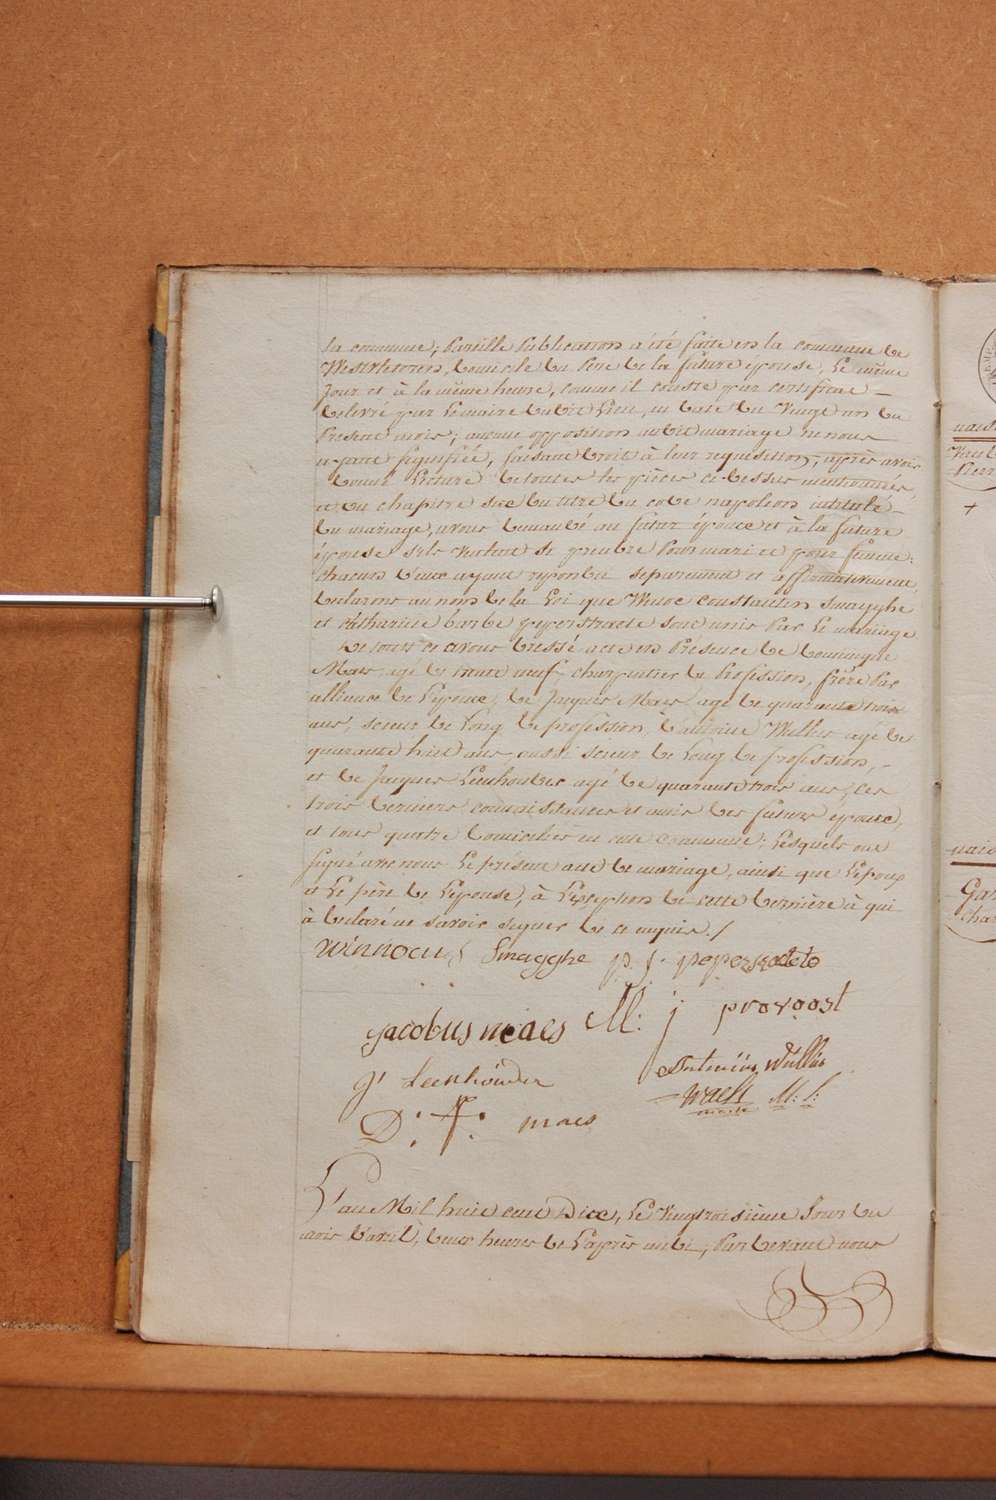 la commune; Pareille Publication a été faite en la commune de
Westvleteren, Domicile du Père de la future épouse, le même
Jour et à la même heure, comme il conste par certificat
délivré par le maire dudit Lieu, en date du Vingt un du
Présent mois; aucune opposition audit mariage ne nous
ayant signifiée, faisant droit à leur requisition, après avoir
donné Lecture de toutes les pièces ci-dessus mentionnées,
et du chapitre six du titre du code napoléon intitulé
du mariage, avons demandé au futur épouce et à la future
épouse s'ils veulent se prendre Pour mari et pour femme:
chacun d'eux ayant repondu séparement et affirmativement,
declarons au nom de la Loi que Winoc constantin Smagghe
et Catharine barbe peperstraete sont unis Par le mariage
De tout ce avons dressé acte en Présence de Dominique
Maes, agé de trente neuf, charpentier de Profession, frère Par
alliance de l'épouce, de Jacques Maes, agé de quarante trois
ans, scieur de Long de profession, d'antoine Wullus agé de
quarante huit ans, aussi scieur de Long de profession,
et de Jacques Leenhouder agé de quarante trois ans, les
trois derniers connaissances et amis des futurs épouce,
et tous quatre domiciliés en cette commune; Lesquels ont
signé avec nous le présent acte de mariage, ainsi que l'époux
et le père de l'épouse, à l'exception de cette dernière à qui
à declaré ne savoir signer de ce enquis./
winnocus Smagghe p. j. peperstraete
Jacobus maes M: j provoost
j: Leenhouder Antonius Wullus
D: F: maes
L'an Mil huit cent Dix, le Vingtroisième Jour du
mois d'avril, deux heures de l'après midi, Par devant nous
+